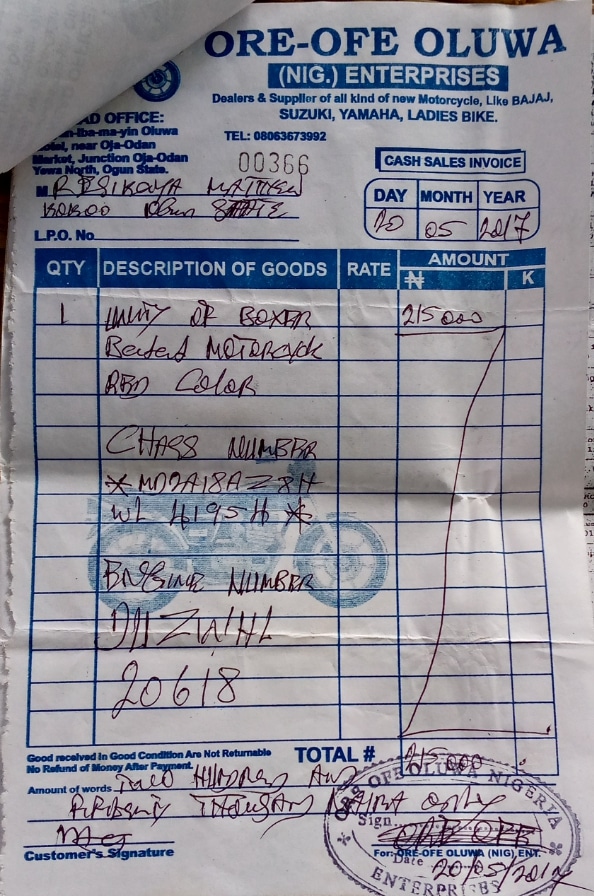 ORE-OFE OLUWA
(NIG.) ENTERPRISES
Dealers & Supplier of all kind of new Motorcycle, Like BAJAJ,
SUZUKI, YAMAHA, LADIES BIKE.
AD OFFICE:
n-iba-ma-yin Oluwa
otel, near Oja-Odan
Market, Junction Oja-Odan
Yewa North, Ogun State.
TEL: 08063673992
00366
CASH SALES INVOICE
M
DAY MONTH YEAR
20 05 2017
L.P.O. No
QTY DESCRIPTION OF GOODS RATE AMOUNT
₦ K
1 UNITY OF BOXER 215000
MOTORCYCLE
RED COLOR
CHASS NUMBER
*MD2A18AZ8H
WL 4195H*
ENGINE NUMBER
DUZWHL
20618
Good received in Good Condition Are Not Returnable
No Refund of Money After Payment.
TOTAL # 215000
Amount of words TWO HUNDRED AND
THOUSAND NAIRA only
Customer's Signature
For: ORE-OFE OLUWA (NIG) ENT.
ORE OFE OLUWA NIGERIA
Sign
Date 20/05/2017
ENTERPRISES